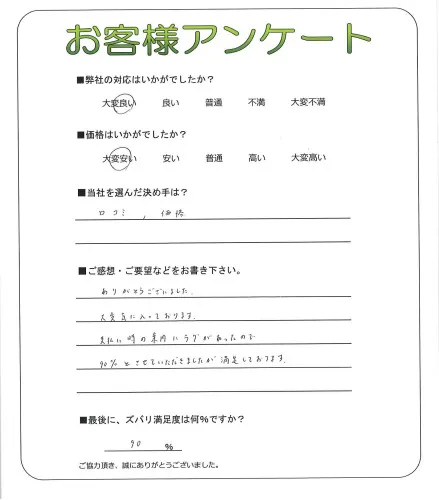 お客様アンケート
■弊社の対応はいかがでしたか？
大変良い 良い 普通 不満 大変不満
■価格はいかがでしたか？
大変安い 安い 普通 高い 大変高い
■当社を選んだ決め手は？
口コミ , 価格
■ご感想・ご要望などをお書き下さい。
ありがとうございました.
大変気に入っております.
支払い時の案内にラグがあったので
90%とさせていただきましたが満足しております.
■最後に、ズバリ満足度は何%ですか？
90 %
ご協力頂き、誠にありがとうございました。